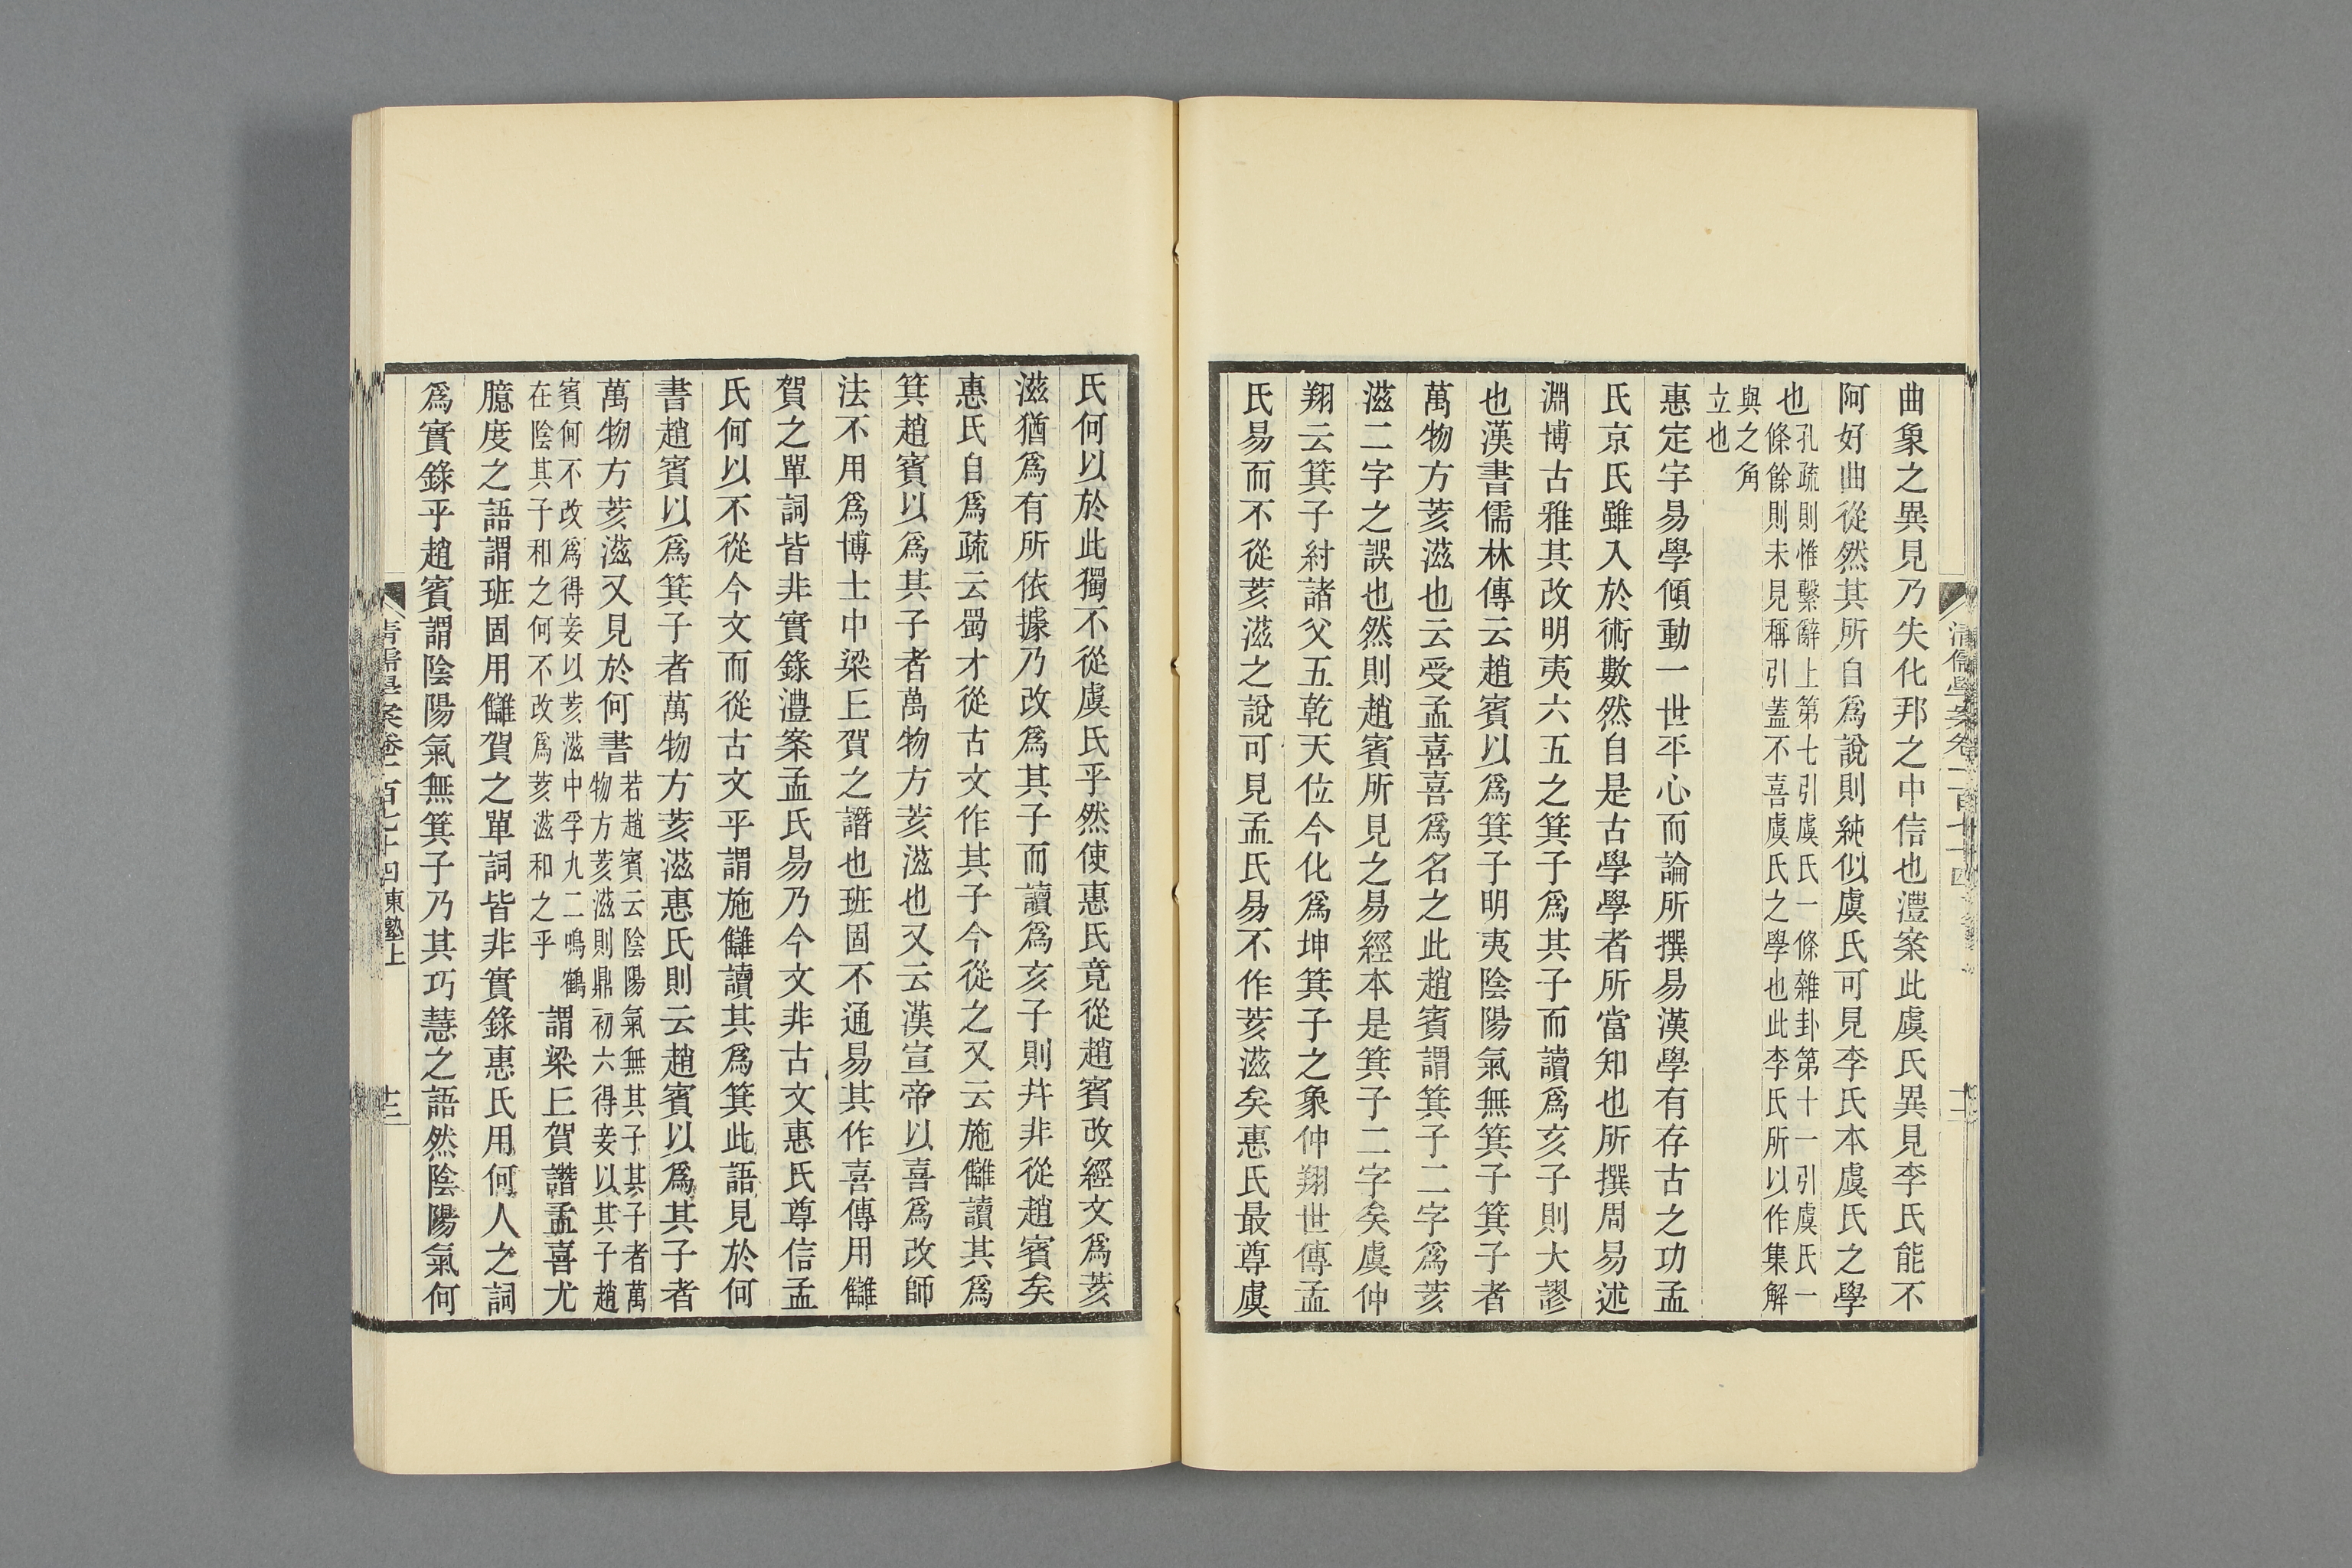 曲象之異見乃失化邦之中信也澧案此虞氏異見李氏能不
阿好曲從然其所自爲說則純似虞氏可見李氏本虞氏之學
也孔疏則惟繫辭上第七引虞氏一條雜卦第十一引虞氏一
條餘則未見稱引蓋不喜虞氏之學也此李氏所以作集解
與之角
立也
惠定宇易學傾動一世平心而論所撰易漢學有存古之功孟
氏京氏雖入於術數然自是古學學者所當知也所撰周易述
淵博古雅其改明夷六五之箕子爲其子而讀爲亥子則大謬
也漢書儒林傳云趙賓以爲箕子明夷陰陽氣無箕子箕子者
萬物方荄滋也云受孟喜喜爲名之此趙賓謂箕子二字爲荄
滋二字之誤也然則趙賓所見之易經本是箕子二字矣虞仲
翔云箕子紂諸父五乾天位今化爲坤箕子之象仲翔世傳孟
氏易而不從荄滋之說可見孟氏易不作荄滋矣惠氏最尊虞
氏何以於此獨不從虞氏乎然使惠氏竟從趙賓改經文爲荄
滋猶爲有所依據乃改爲其子而讀爲亥子則幷非從趙賓矣
惠氏自爲疏云蜀才從古文作其子今從之又云施讎讀其爲
箕趙賓以爲其子者萬物方荄滋也又云漢宣帝以喜爲改師
法不用爲博士中梁丘賀之譖也班固不通易其作喜傳用讎
賀之單詞皆非實錄澧案孟氏易乃今文非古文惠氏尊信孟
氏何以不從今文而從古文乎謂施讎讀其爲箕此語見於何
書趙賓以爲箕子者萬物方荄滋惠氏則云趙賓以爲其子者
萬物方荄滋又見於何書若趙賓云陰陽氣無其子其子者萬
物方荄滋則鼎初六得妾以其子趙
賓何不改爲得妾以荄滋中孚九二鳴鶴
在陰其子和之何不改爲荄滋和之乎謂梁丘賀譖孟喜尤
臆度之語謂班固用讎賀之單詞皆非實錄惠氏用何人之詞
爲實錄乎趙賓謂陰陽氣無箕子乃其巧慧之語然陰陽氣何
清儒學案卷一百七十四東塾上
十三